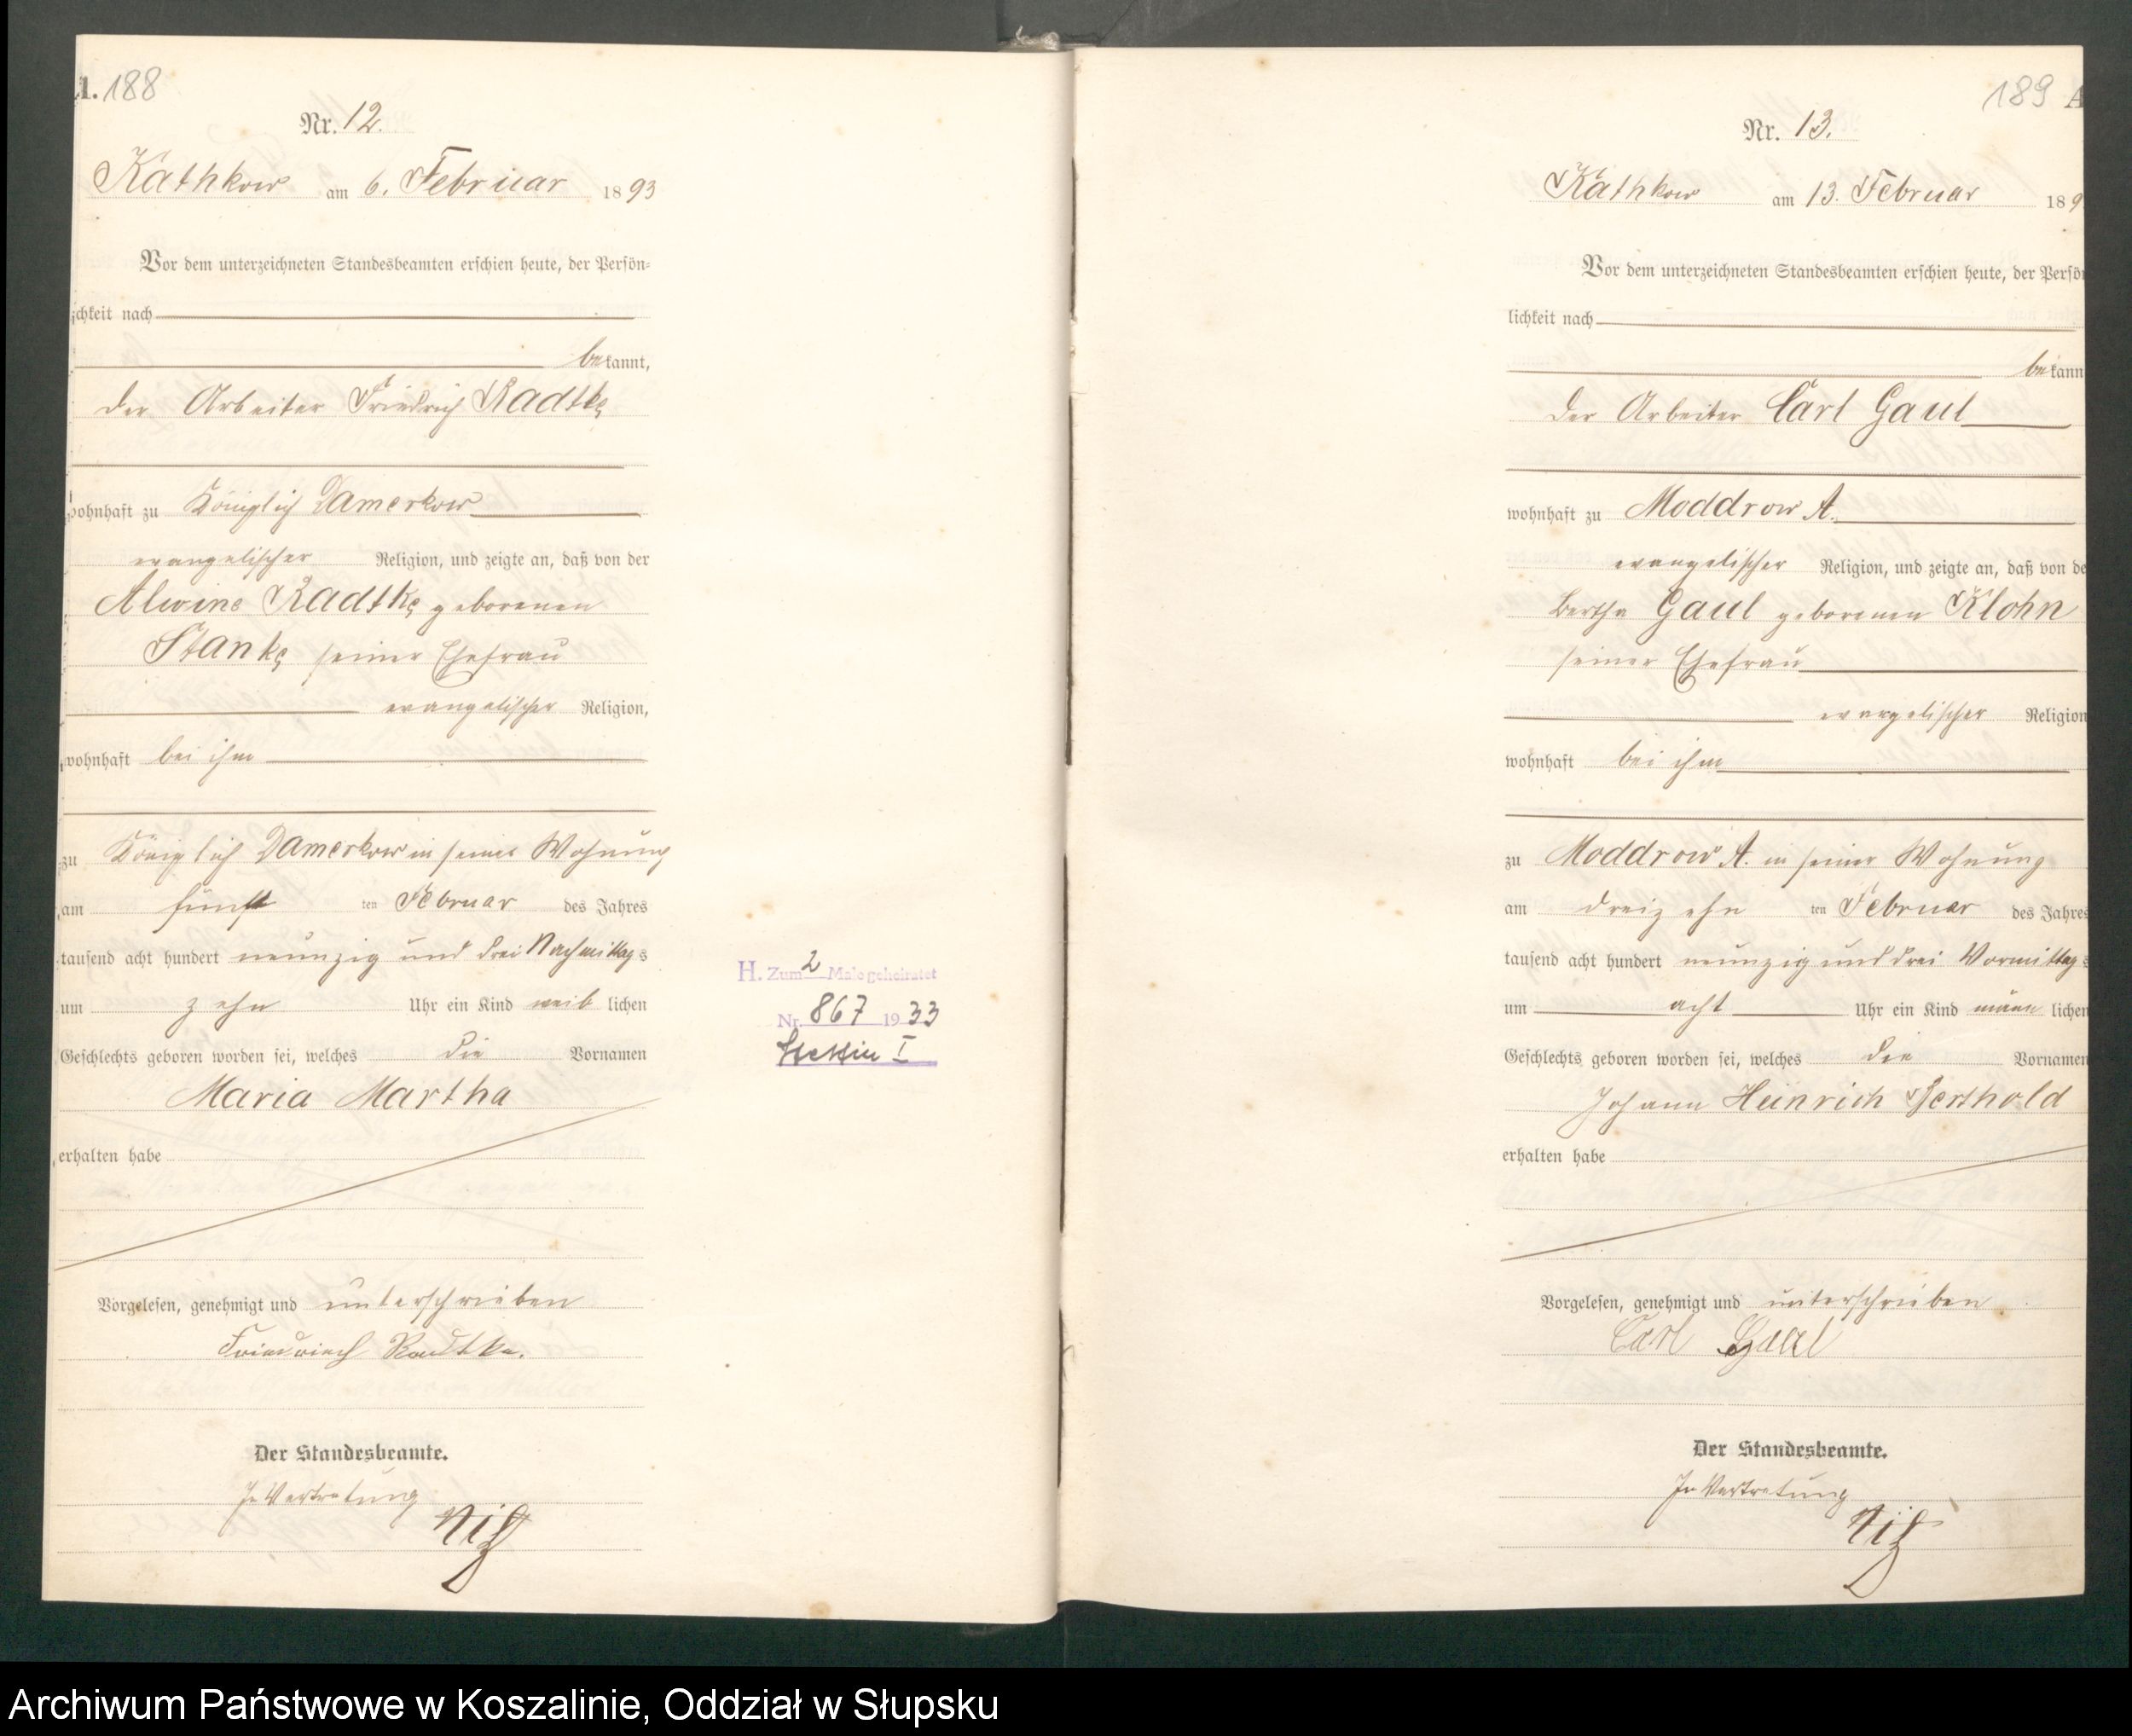 A. 188
Nr. 12.
Käthkow am 6. Februar 1893
Vor dem unterzeichneten Standesbeamten erschien heute, der Persön=
lichkeit nach
bekannt,
der Arbeiter Friedrich Radtke
wohnhaft zu Königlich Damerkow
evangelischer Religion, und zeigte an, daß von der
Alwine Radtke geborenen
Stanke seiner Ehefrau
evangelischer Religion,
wohnhaft bei ihm
zu Königlich Damerkow in seiner Wohnung
am fünf ten Februar des Jahres
tausend acht hundert neunzig und drei Nachmittags
um zehn Uhr ein Kind weib lichen
Geschlechts geboren worden sei, welches die Vornamen
Maria Martha
erhalten habe
Vorgelesen, genehmigt und unterschrieben
Friedriech Radtke.
Der Standesbeamte.
In Vertretung
H. Zum 2 Male geheiratet
Nr. 867 1933
Stettin I
189 A
Nr. 13.
Käthkow am 13. Februar 189
Vor dem unterzeichneten Standesbeamten erschien heute, der Persö
lichkeit nach
bekann
der Arbeiter Carl Gaul
wohnhaft zu Moddrow A.
evangelischer Religion, und zeigte an, daß von de
Bertha Gaul geborenen Klohn
seiner Ehefrau
evangelischer Religion
wohnhaft bei ihm
zu Moddrow A. in seiner Wohnung
am dreizehn ten Februar des Jahres
tausend acht hundert neunzig und drei Vormittags
um acht Uhr ein Kind männ lichen
Geschlechts geboren worden sei, welches die Vornamen
Johann Heinrich Berthold
erhalten habe
Vorgelesen, genehmigt und unterschrieben
Carl Gaul
Der Standesbeamte.
In Vertretung
Archiwum Państwowe w Koszalinie, Oddział w Słupsku